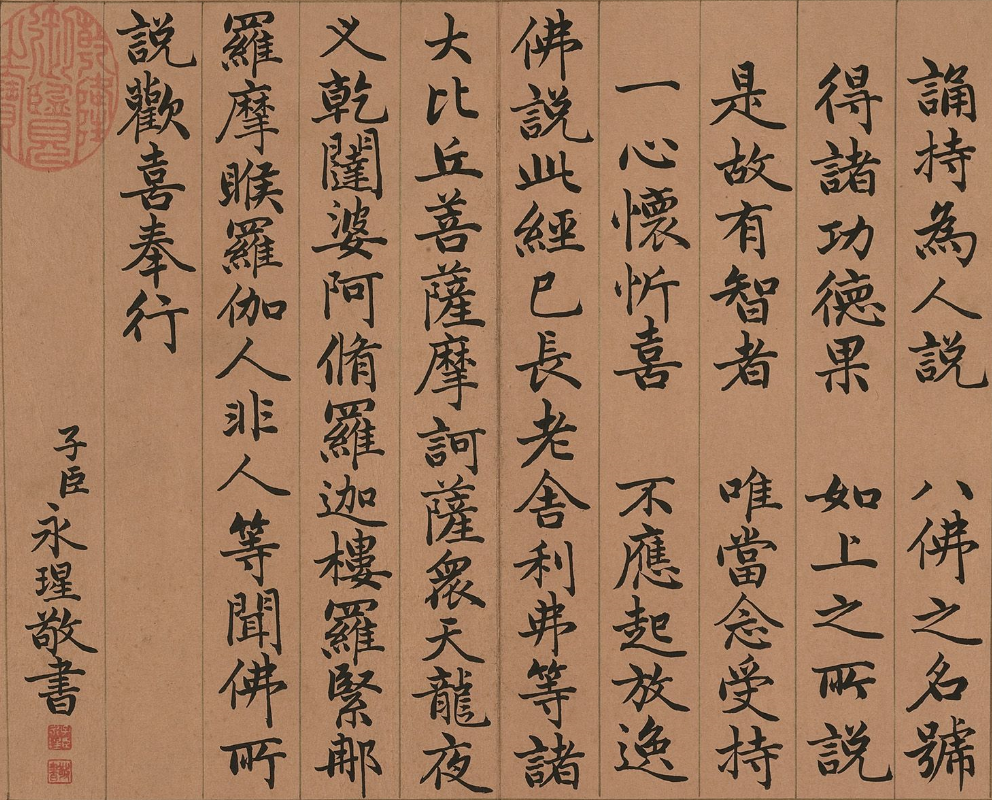 誦持為人説　八佛之名號
得諸功德果　如上之所説
是故有智者　唯當念受持
一心懷忻喜　不應起放逸
佛説此經已長老舍利弗等諸
大比丘菩薩摩訶薩衆天龍夜
乂乾闥婆阿脩羅迦樓羅緊那
羅摩睺羅伽人非人等聞佛所
説歡喜奉行
子臣永瑆敬書